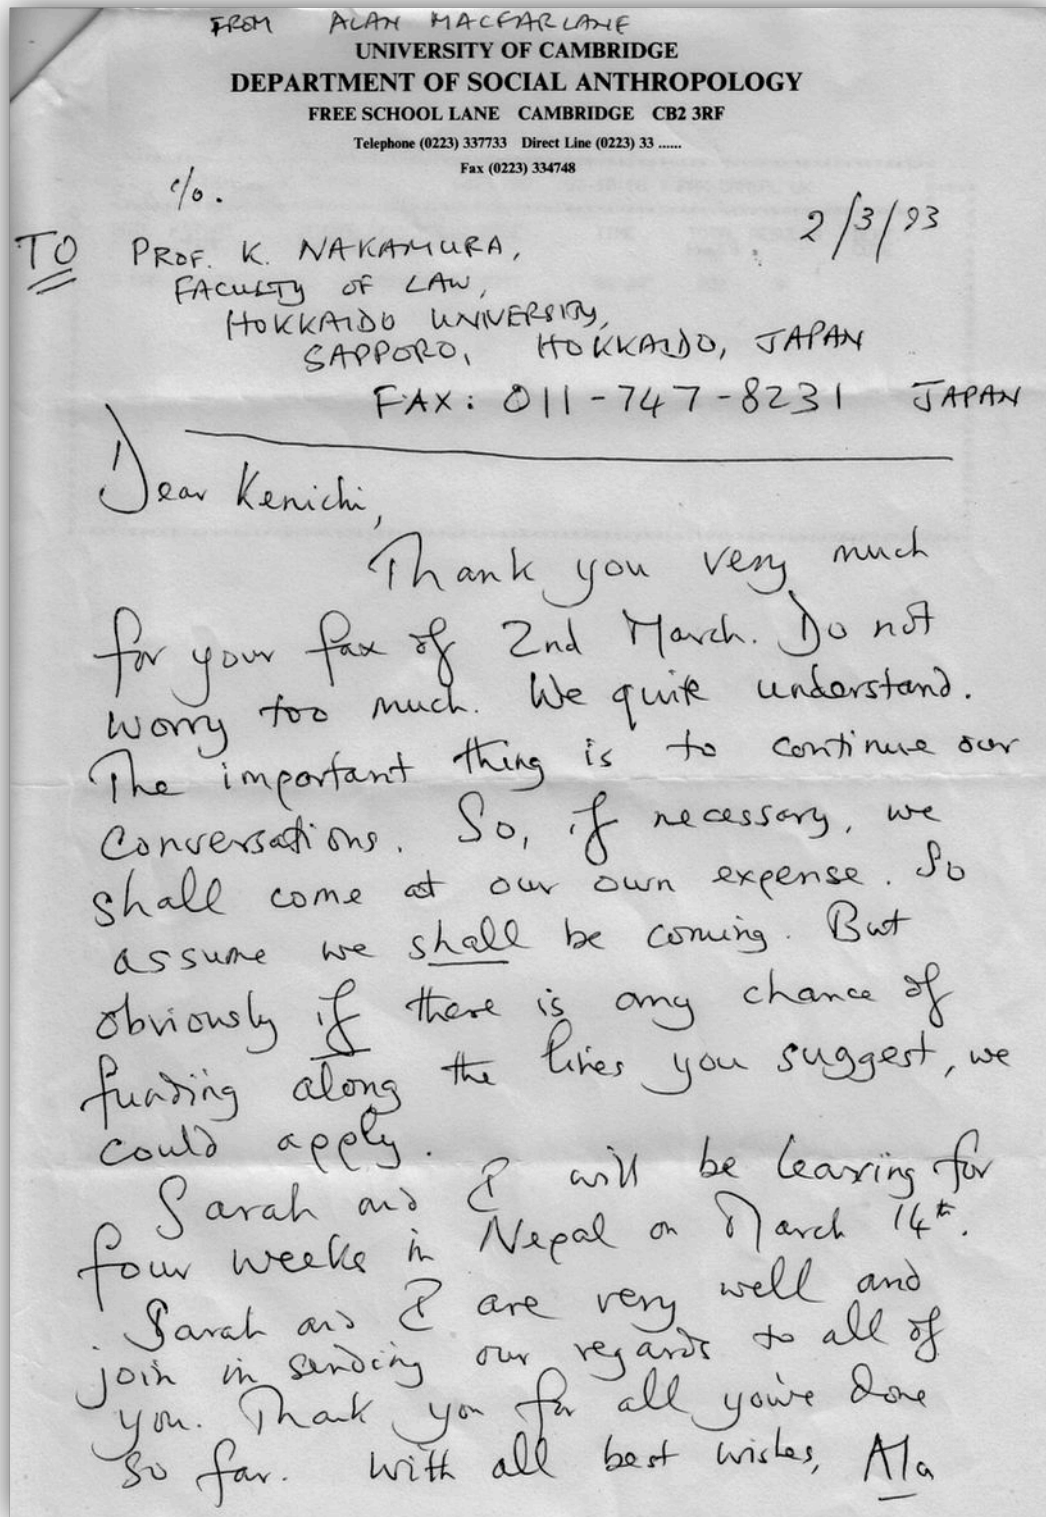 FROM ALAN MACFARLANE
UNIVERSITY OF CAMBRIDGE
DEPARTMENT OF SOCIAL ANTHROPOLOGY
FREE SCHOOL LANE CAMBRIDGE CB2 3RF
Telephone (0223) 337733 Direct Line (0223) 33 ......
Fax (0223) 334748
c/o.
2/3/93
TO PROF. K. NAKAMURA,
FACULTY OF LAW,
HOKKAIDO UNIVERSITY,
SAPPORO, HOKKAIDO, JAPAN
FAX: 011-747-8231 JAPAN
Dear Kenichi,
Thank you very much
for your fax of 2nd March. Do not
worry too much. We quite understand.
The important thing is to continue our
conversations. So, if necessary, we
shall come at our own expense. So
assume we shall be coming. But
obviously if there is any chance of
funding along the lines you suggest, we
could apply.
Sarah and I will be leaving for
four weeks in Nepal on March 14th.
Sarah and I are very well and
join in sending our regards to all of
you. Thank you for all you've done
so far. With all best wishes, Ala